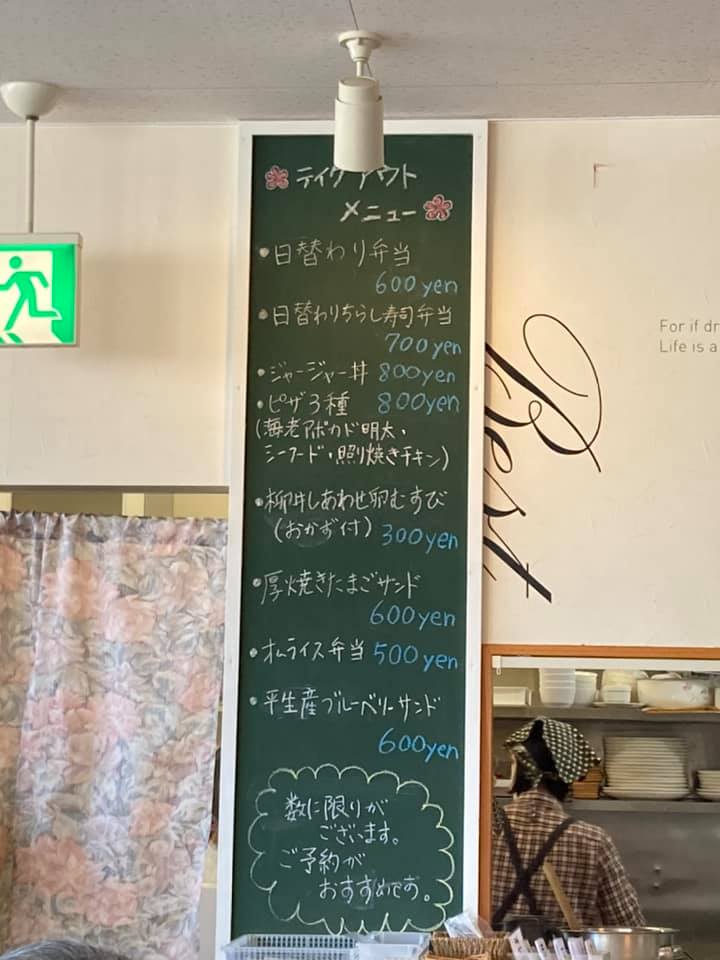 テイクアウト
メニュー
・日替わり弁当
600yen
・日替わりちらし寿司弁当
700yen
・ジャージャー丼 800yen
・ピザ3種 800yen
(海老アボカド明太・
シーフード・照り焼きチキン)
・柳井しあわせ卵むすび
(おかず付) 300yen
・厚焼きたまごサンド
600yen
・オムライス弁当 500yen
・平生産ブルーベリーサンド
600yen
数に限りが
ございます。
ご予約が
おすすめです。
Best
For if dr
Life is a